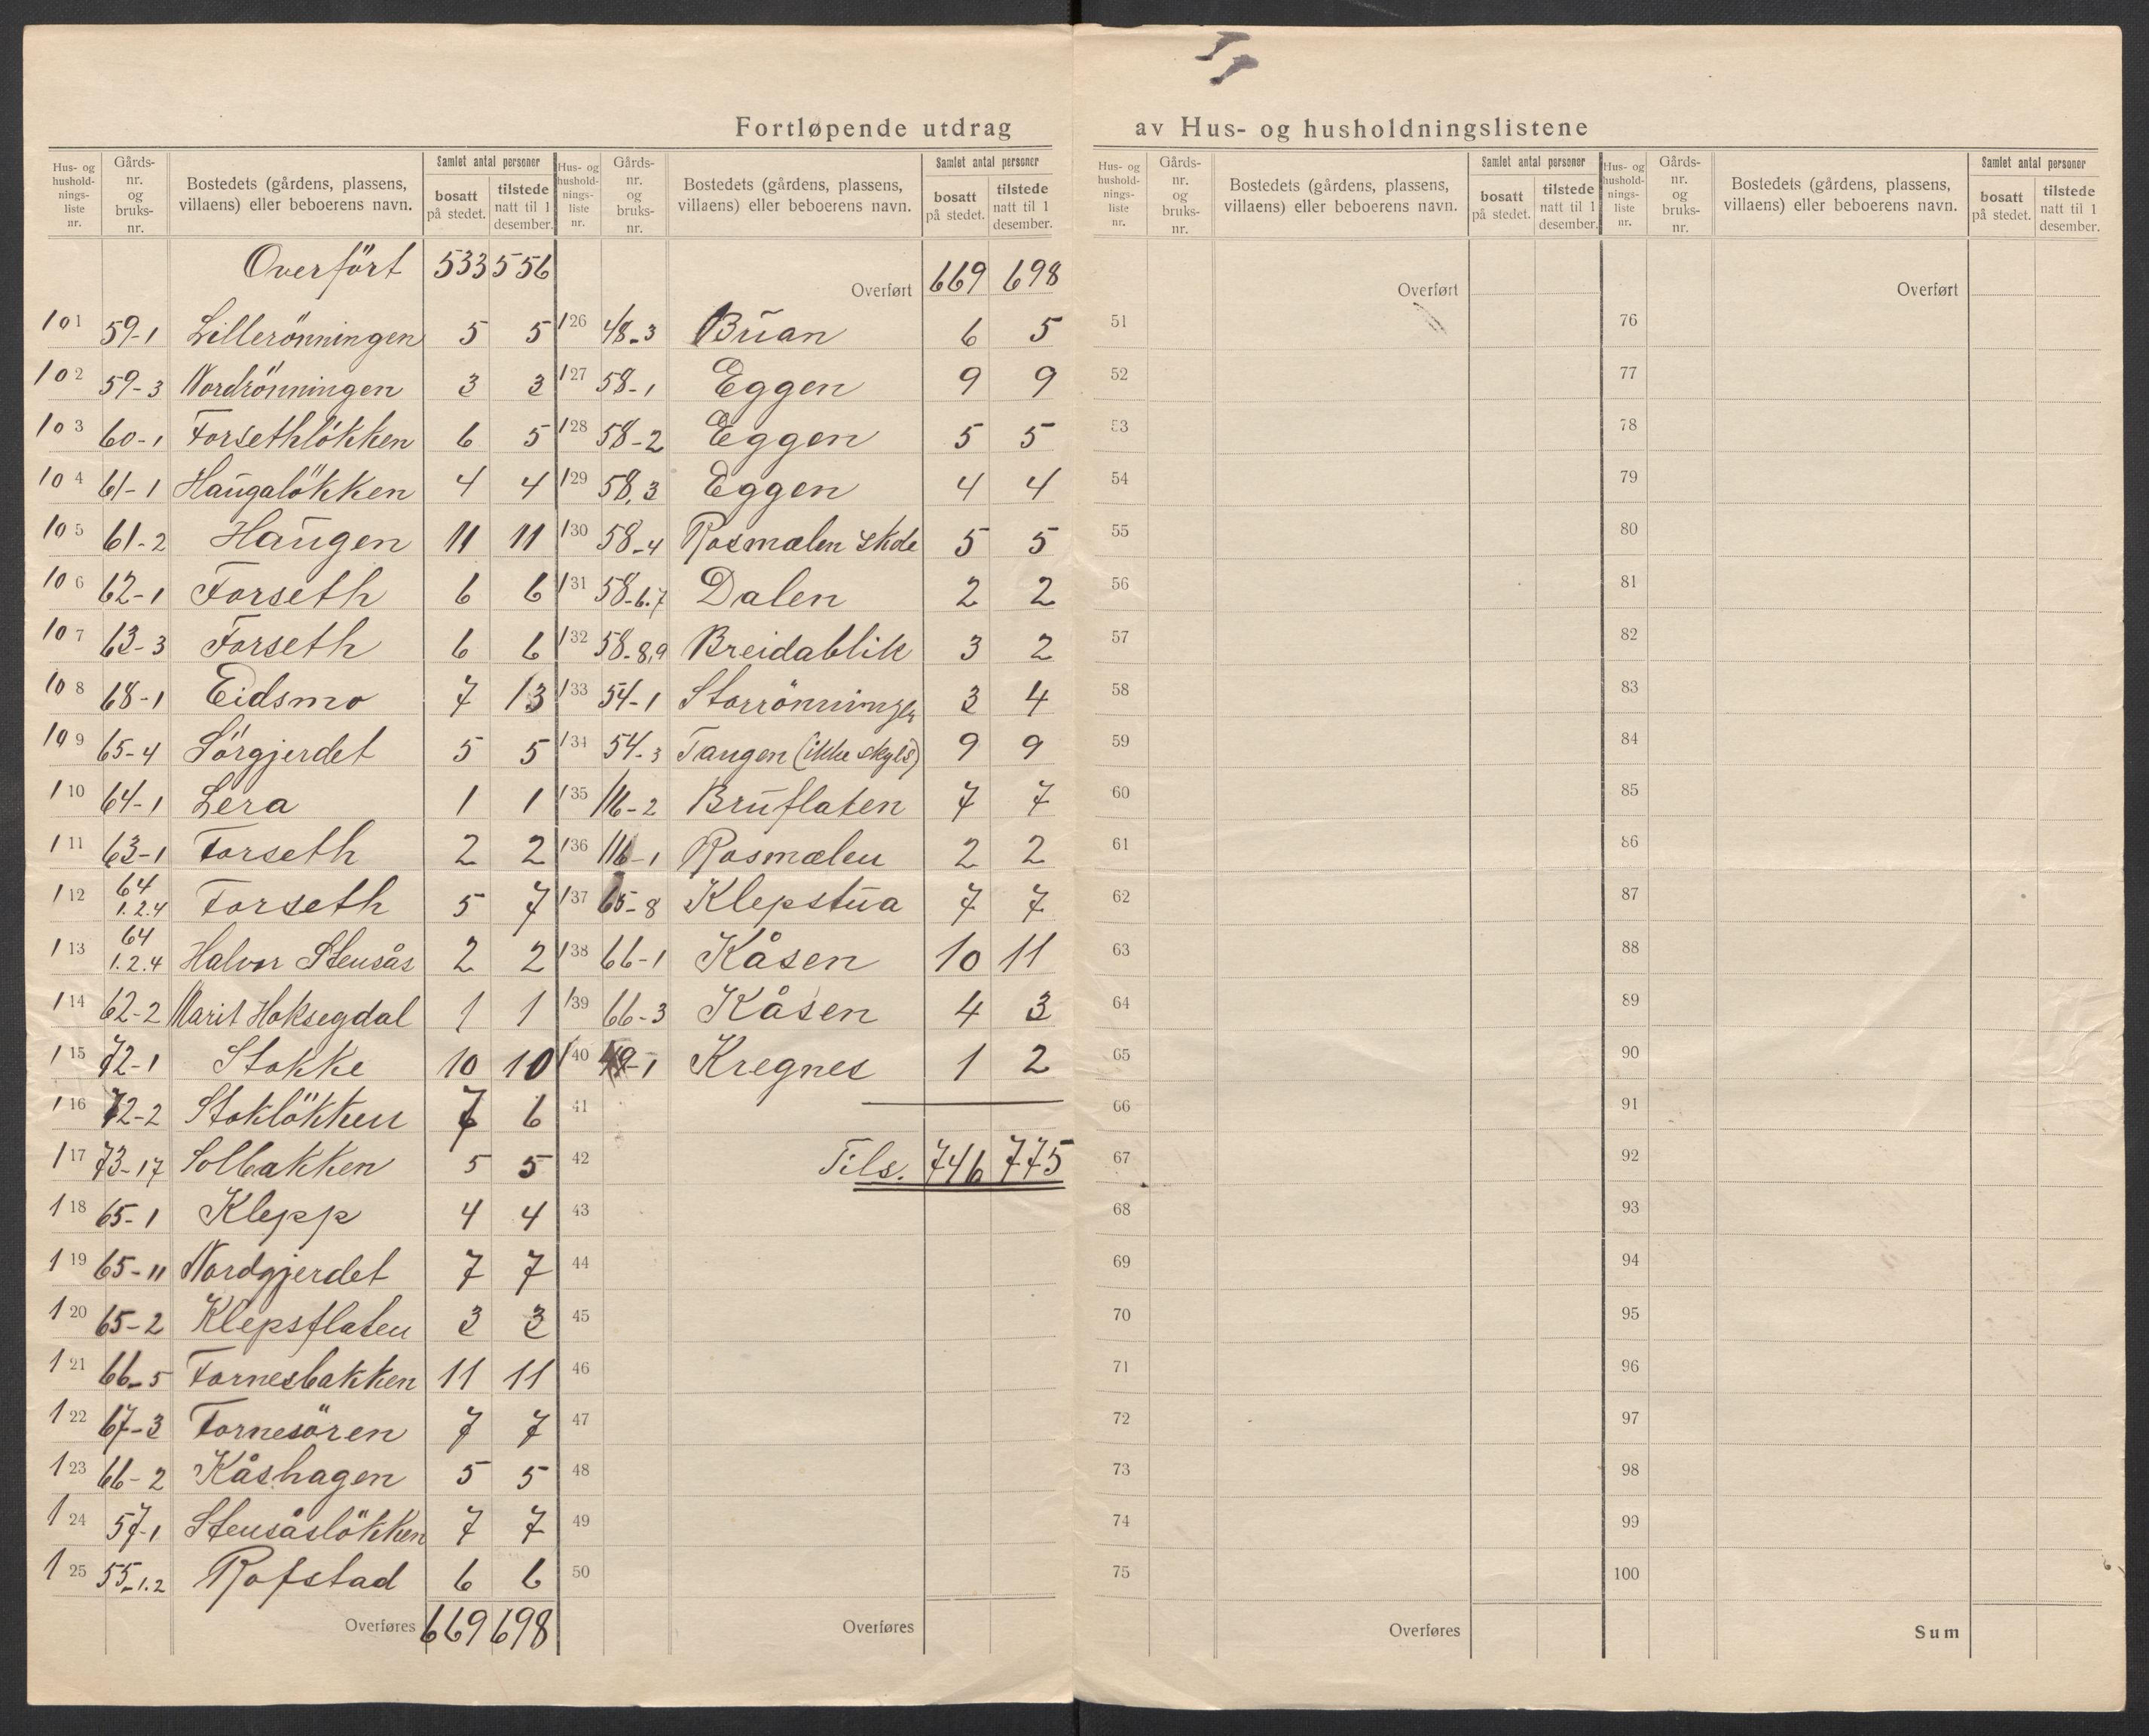 Fortløpende utdrag av Hus- og husholdningslistene
Hus- og husholdnings-liste nr. Gårds-nr. og bruks-nr. Bostedets (gårdens, plassens, villaens) eller beboerens navn. Samlet antal personer bosatt på stedet. tilstede natt til 1 desember.
Overført 533 556
101 59-1 Lillerönningen 5 5
102 59-3 Nordrönningen 3 3
103 60-1 Forsethlökken 6 5
104 61-1 Haugalökken 4 4
105 61-2 Haugen 11 11
106 62-1 Forseth 6 6
107 63-3 Forseth 6 6
108 68-1 Eidsmo 7 13
109 65-4 Sörgjerdet 5 5
110 64-1 Lera 1 1
111 63-1 Forseth 2 2
112 64 1.2.4 Forseth 5 7
113 64 1.2.4 Halvor Stensås 2 2
114 62-2 Marit Hoksegdal 1 1
115 72-1 Stokke 10 10
116 72-2 Stoklökken 7 6
117 73-17 Solbakken 5 5
118 65-1 Klepp 4 4
119 65-11 Nordgjerdet 7 7
120 65-2 Klepsflaten 3 3
121 66-5 Fornesbakken 11 11
122 67-3 Fornesören 7 7
123 66-2 Kåshagen 5 5
124 57-1 Stensåslökken 7 7
125 55-1.2 Rofstad 6 6
Overføres 669 698
Hus- og husholdnings-liste nr. Gårds-nr. og bruks-nr. Bostedets (gårdens, plassens, villaens) eller beboerens navn. Samlet antal personer bosatt på stedet. tilstede natt til 1 desember.
Overført 669 698
126 48-3 Buan 6 5
127 58-1 Eggen 9 9
128 58-2 Eggen 5 5
129 58,3 Eggen 4 4
130 58-4 Rosmælen skole 5 5
131 58-6.7 Dalen 2 2
132 58-8,9 Breidablik 3 2
133 54-1 Storrönningen 3 4
134 54-3 Tangen (ikke skyld) 9 9
135 116-2 Bruflaten 7 7
136 116-1 Rosmælen 2 2
137 65-8 Klepstua 7 7
138 66-1 Kåsen 10 11
139 66-3 Kåsen 4 3
140 49-1 Kregnes 1 2
41
42 Tils. 746 775
43
44
45
46
47
48
49
50
Overføres
Hus- og husholdnings-liste nr. Gårds-nr. og bruks-nr. Bostedets (gårdens, plassens, villaens) eller beboerens navn. Samlet antal personer bosatt på stedet. tilstede natt til 1 desember.
Overført
51
52
53
54
55
56
57
58
59
60
61
62
63
64
65
66
67
68
69
70
71
72
73
74
75
Overføres
Hus- og husholdnings-liste nr. Gårds-nr. og bruks-nr. Bostedets (gårdens, plassens, villaens) eller beboerens navn. Samlet antal personer bosatt på stedet. tilstede natt til 1 desember.
Overført
76
77
78
79
80
81
82
83
84
85
86
87
88
89
90
91
92
93
94
95
96
97
98
99
100
Sum